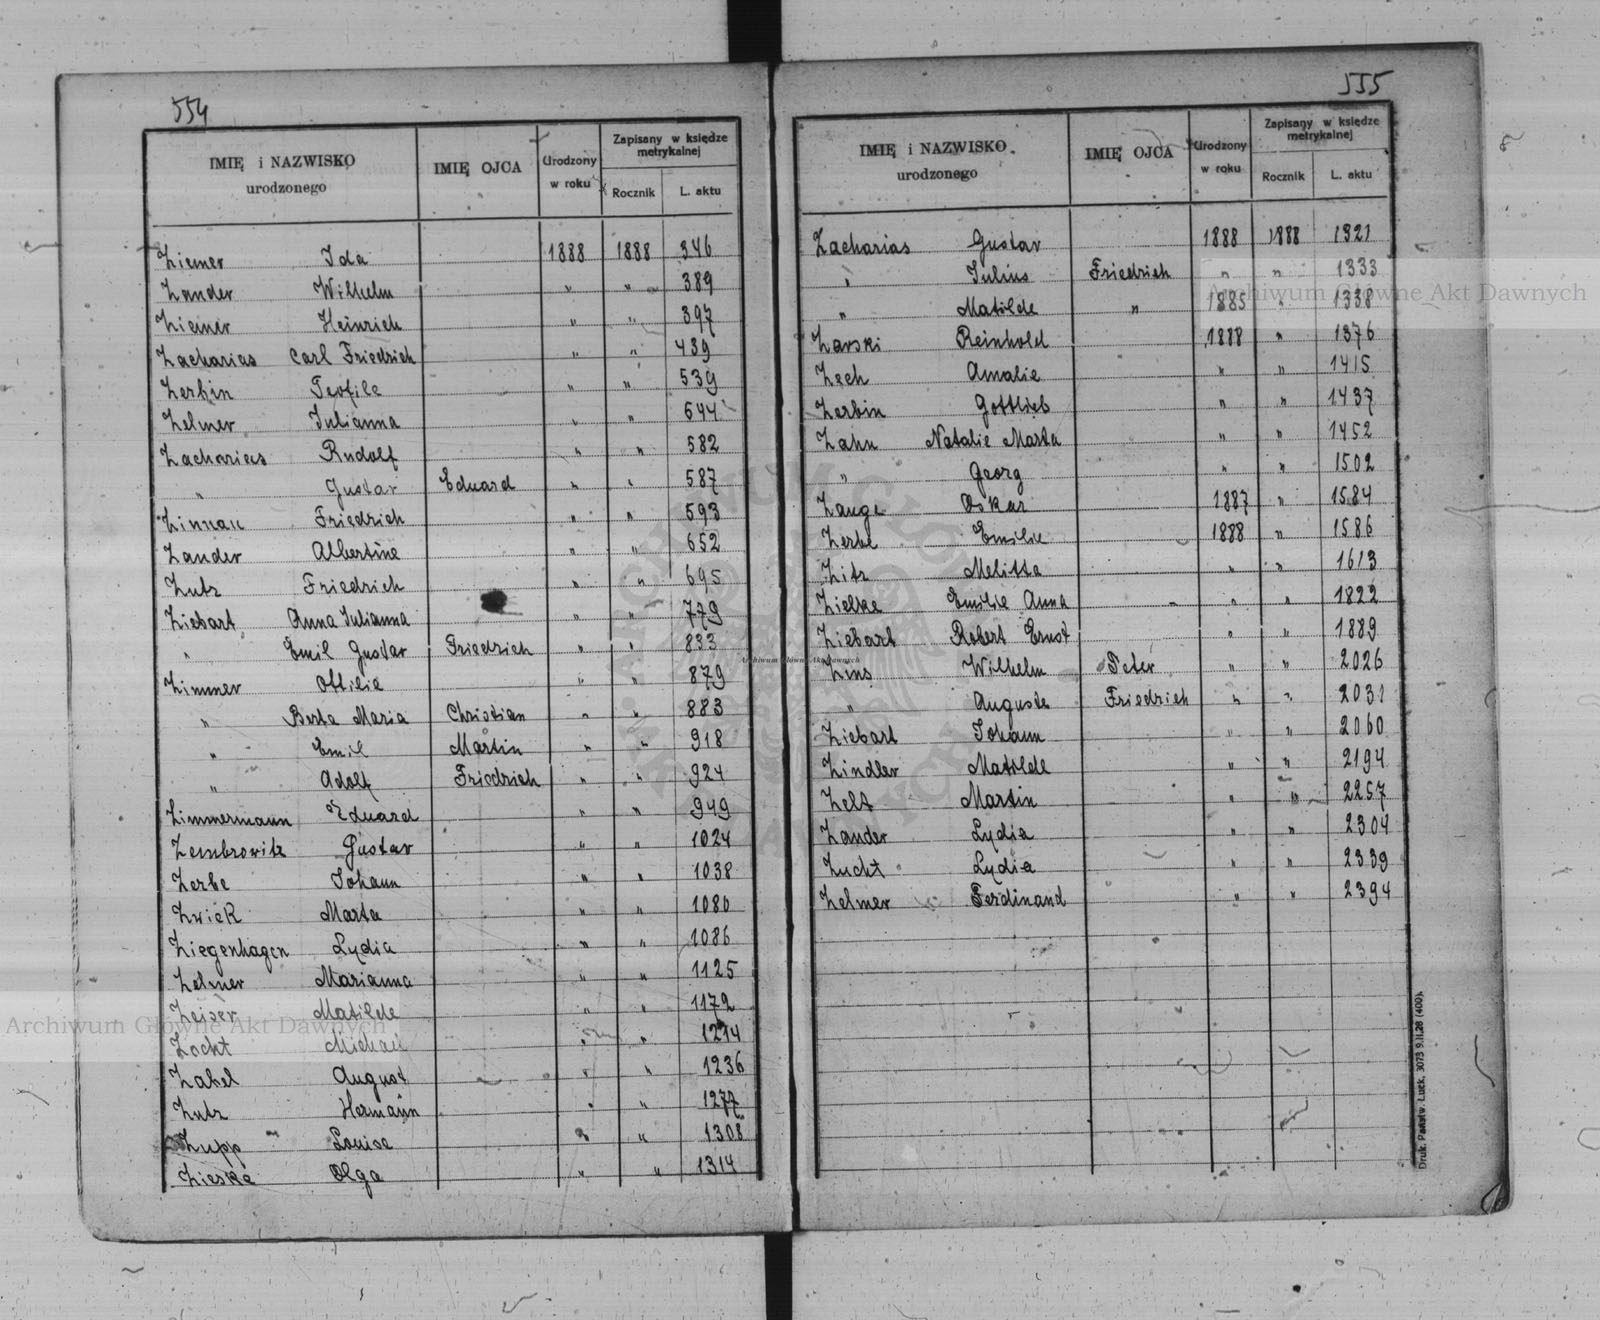 554
IMIĘ i NAZWISKO urodzonego IMIĘ OJCA Urodzony w roku Zapisany w księdze metrykalnej Rocznik L. aktu
Ziemer Ida 1888 1888 346
Zander Wilhelm " " 389
Ziemer Heinrich " " 397
Zacharias Carl Friedrich " " 439
Zerbin Teofile " " 539
Zelmer Julianna " " 544
Zacharias Rudolf " " 582
" Gustav Eduard " " 587
Zinnau Friedrich " " 593
Zander Albertine " " 652
Zutz Friedrich " " 695
Ziebart Anna Julianna " " 779
" Emil Gustav Friedrich " " 833
Zimmer Ottilie " " 879
" Berta Maria Christian " " 883
" Emil Martin " " 918
" Adolf Friedrich " " 924
Zimmermann Eduard " " 949
Zembrowitz Gustav " " 1024
Zerbe Johann " " 1038
Zwiek Marta " " 1080
Ziegenhagen Lydia " " 1086
Zelmer Marianna " " 1125
Zeiser Matilde " " 1172
Zocht Michael " " 1214
Zabel August " " 1236
Zutz Hermann " " 1277
Zupp Louise " " 1308
Zieske Olga " " 1314
555
IMIĘ i NAZWISKO urodzonego IMIĘ OJCA Urodzony w roku Zapisany w księdze metrykalnej Rocznik L. aktu
Zacharias Gustav 1888 1888 1321
" Julius Friedrich " " 1333
" Matilde " 1885 " 1338
Zarski Reinhold 1888 " 1376
Zech Amalie " " 1415
Zerbin Gottlieb " " 1437
Zahn Natalie Marta " " 1452
" Georg " " 1502
Zange Oskar 1887 " 1584
Zerbe Emilie 1888 " 1586
Zitz Melitta " " 1613
Zielke Emilie Anna " " 1822
Ziebart Robert Ernst " " 1889
Zins Wilhelm Peter " " 2026
" Auguste Friedrich " " 2031
Ziebart Johann " " 2060
Zindler Matilde " " 2194
Zelt Martin " " 2257
Zander Lydia " " 2304
Zucht Lydia " " 2339
Zelmer Ferdinand " " 2394
Druk. Państw. Łuck, 3073 9.II.28 (400).
Archiwum Główne Akt Dawnych
Archiwum Główne Akt Dawnych
Archiwum Główne Akt Dawnych
ARCHIWUM GŁÓWNE AKT DAWNYCH